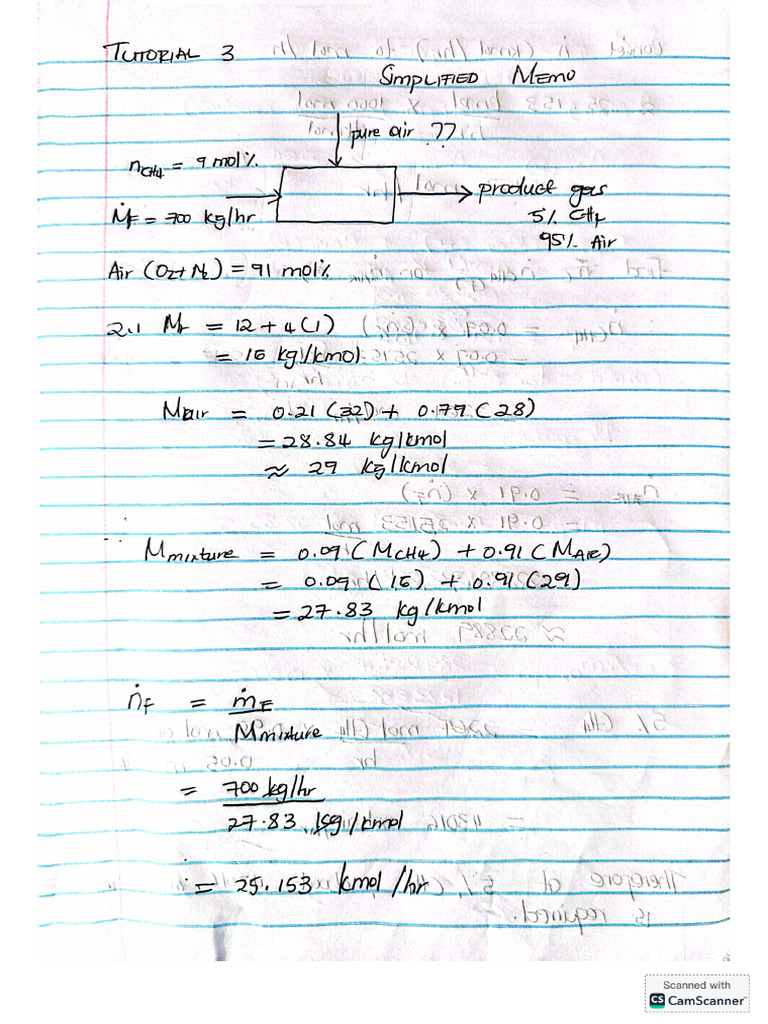 TUTORIAL 3
SIMPLIFIED MEMO
pure air ??
nCH4 = 9 mol%
product gas
ṀF = 700 kg/hr
5% CH4
95% Air
Air (O2 + N2) = 91 mol%
2.1 Mr = 12 + 4(1)
= 16 kg/kmol
Mair = 0.21 (32) + 0.79 (28)
= 28.84 kg/kmol
≈ 29 kg/kmol
∴ Mmixture = 0.09 (MCH4) + 0.91 (MAIR)
= 0.09 (16) + 0.91 (29)
= 27.83 kg/kmol
ṅF = ṁF
Mmixture
= 700 kg/hr
27.83 kg/kmol
= 25.153 kmol/hr
Scanned with
CS CamScanner